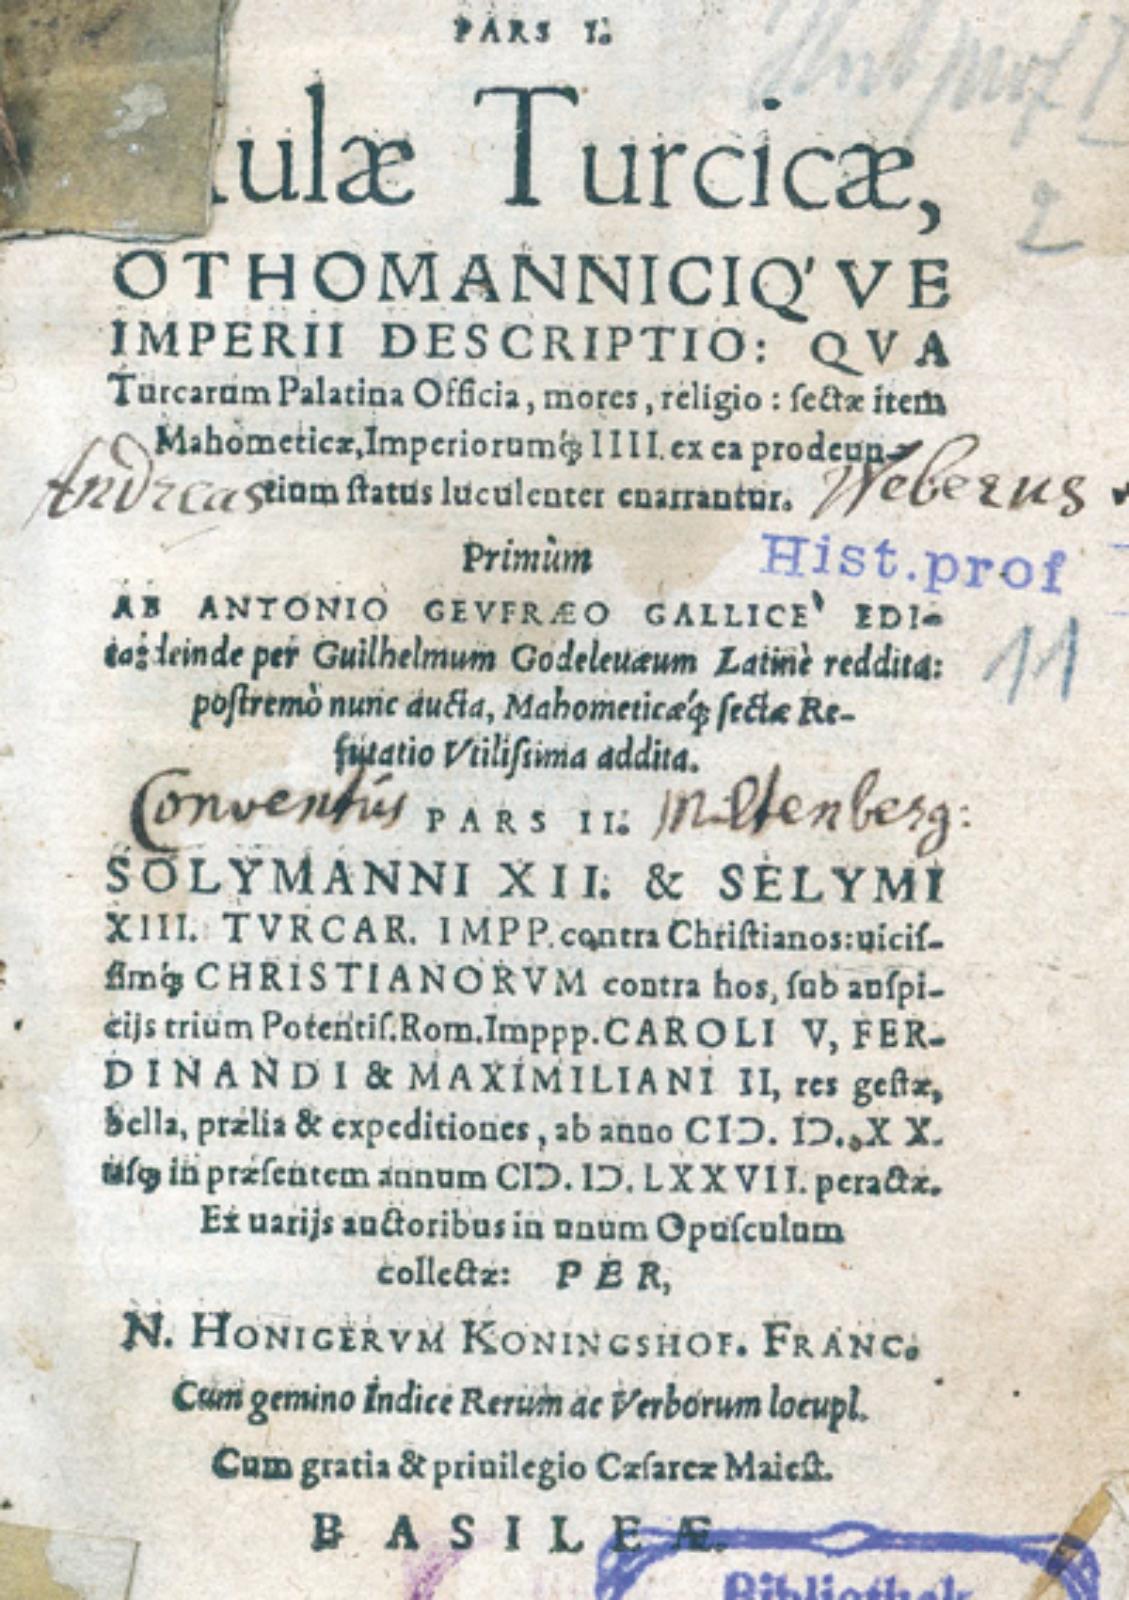 PARS I.
ulæ Turcicæ,
2
OTHOMANNICIQ' VE
IMPERII DESCRIPTIO: QVA
Turcarum Palatina Officia, mores, religio: sectæ item
Mahometicæ, Imperiorumq́; IIII. ex ea prodeun-
Andreas tium status luculenter enarrantur. Weberus
Primùm
Hist.prof
AB ANTONIO GEVFRÆO GALLICE' EDI-
11
ta: deinde per Guilhelmum Godeleuæum Latinè reddita:
postremò nunc aucta, Mahometicæq́; sectæ Re-
futatio Vtilissima addita.
Conventûs PARS II. Miltenberg:
SOLYMANNI XII. & SELYMI
XIII. TVRCAR. IMPP. contra Christianos: uicis-
simq́; CHRISTIANORVM contra hos, sub auspi-
cijs trium Potentis. Rom. Imppp. CAROLI V, FER-
DINANDI & MAXIMILIANI II, res gestæ,
bella, prælia & expeditiones, ab anno CIↃ. IↃ. XX.
usq; in præsentem annum CIↃ. IↃ. LXXVII. peractæ.
Ex uarijs auctoribus in unum Opusculum
collectæ: PER,
N. HONIGERVM KONINGSHOF. FRANC.
Cum gemino Indice Rerum ac Verborum locupl.
Cum gratia & priuilegio Cæsareæ Maiest.
BASILEÆ.
Bibliothek